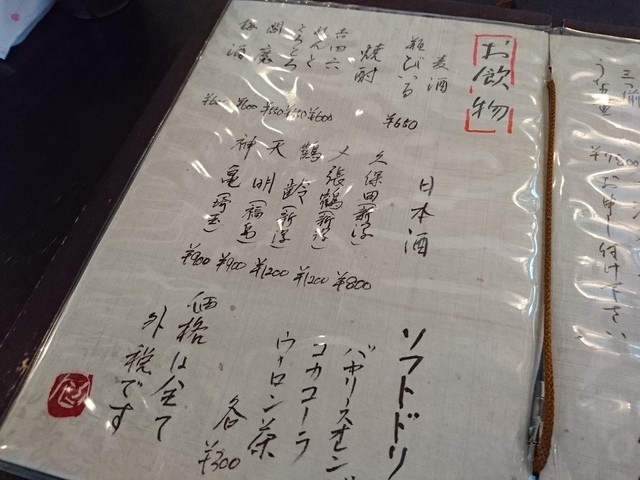 お飲物
麦酒
瓶びいる
¥650
焼酎
吉四六
¥600
れんと
¥550
とろとろ
閻魔
¥600
梅酒
日本酒
久保田(新潟)
¥800
〆張鶴(新潟)
¥1200
鶴齢(新潟)
¥1200
天明(福島)
¥900
神亀(埼玉)
¥900
ソフトドリ
バヤリースオレン
コカコーラ
ウーロン茶
各¥300
価格は全て
外税です
お申し付け下さい